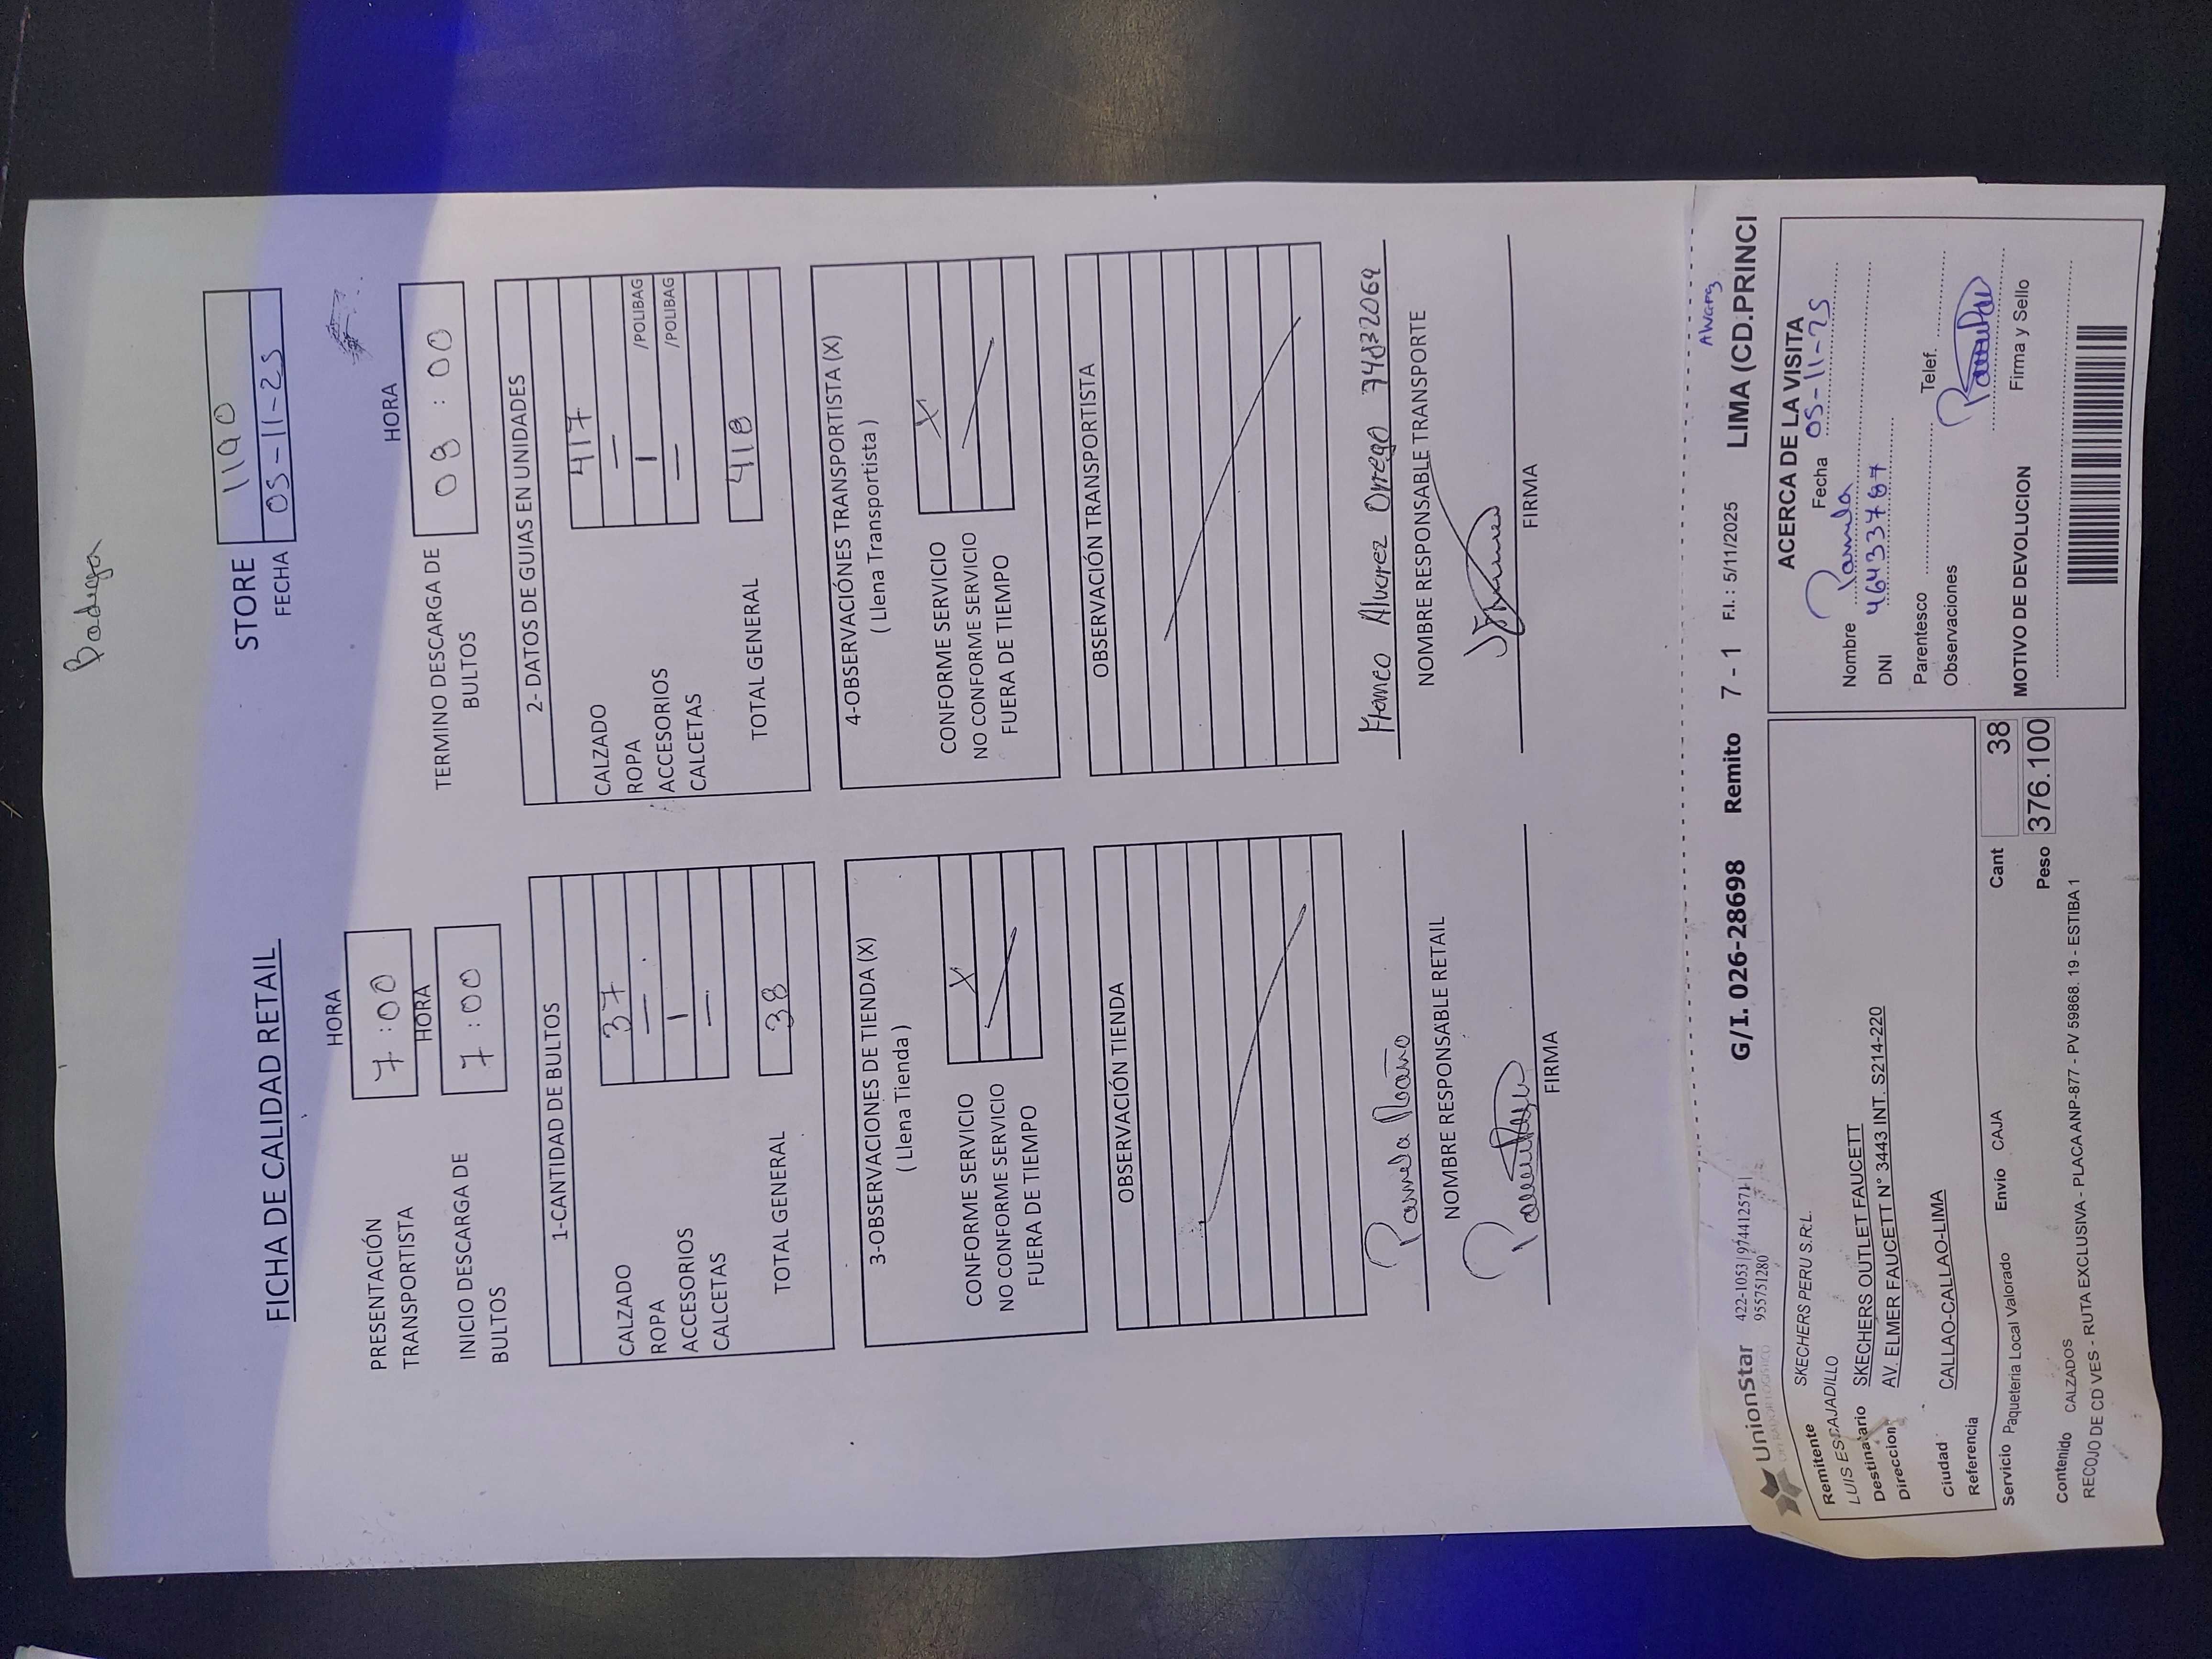 Bodega
FICHA DE CALIDAD RETAIL
STORE 1190
FECHA 05-11-25
HORA
PRESENTACIÓN TRANSPORTISTA 7:00
HORA
INICIO DESCARGA DE BULTOS 7:00
HORA
TERMINO DESCARGA DE BULTOS 08:00
1-CANTIDAD DE BULTOS
CALZADO 37
ROPA —
ACCESORIOS 1
CALCETAS —
TOTAL GENERAL 38
2- DATOS DE GUIAS EN UNIDADES
CALZADO 417
ROPA —
ACCESORIOS 1 /POLIBAG
CALCETAS — /POLIBAG
TOTAL GENERAL 418
3-OBSERVACIONES DE TIENDA (X)
( Llena Tienda )
CONFORME SERVICIO X
NO CONFORME SERVICIO
FUERA DE TIEMPO
4-OBSERVACIÓNES TRANSPORTISTA (X)
( Llena Transportista )
CONFORME SERVICIO X
NO CONFORME SERVICIO
FUERA DE TIEMPO
OBSERVACIÓN TIENDA
OBSERVACIÓN TRANSPORTISTA
Pamela
NOMBRE RESPONSABLE RETAIL
FIRMA
Franco Alvarez Orrego 74832069
NOMBRE RESPONSABLE TRANSPORTE
FIRMA
UnionStar
OPERADOR LOGISTICO
422-1053|974412571|
955751280
G/I. 026-28698 Remito 7 - 1 F.I. : 5/11/2025 LIMA (CD.PRINCI
Remitente SKECHERS PERU S.R.L.
LUIS ESCAJADILLO
Destinatario SKECHERS OUTLET FAUCETT
Direccion AV. ELMER FAUCETT N° 3443 INT. S214-220
Ciudad CALLAO-CALLAO-LIMA
Referencia
Servicio Paqueteria Local Valorado Envio CAJA Cant 38
Contenido CALZADOS Peso 376.100
RECOJO DE CD VES - RUTA EXCLUSIVA - PLACA ANP-877 - PV 59868. 19 - ESTIBA 1
ACERCA DE LA VISITA
Fecha 05-11-25
Nombre Pamela
DNI 46433787
Parentesco Telef.
Observaciones
Firma y Sello
MOTIVO DE DEVOLUCION